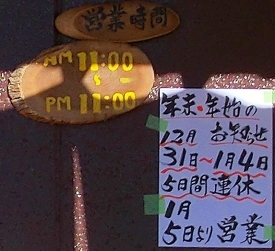 営業時間
AM 11:00
〜
PM 11:00
年末・年始の
お知らせ
12月
31日〜1月4日
5日間連休
1月
5日より営業